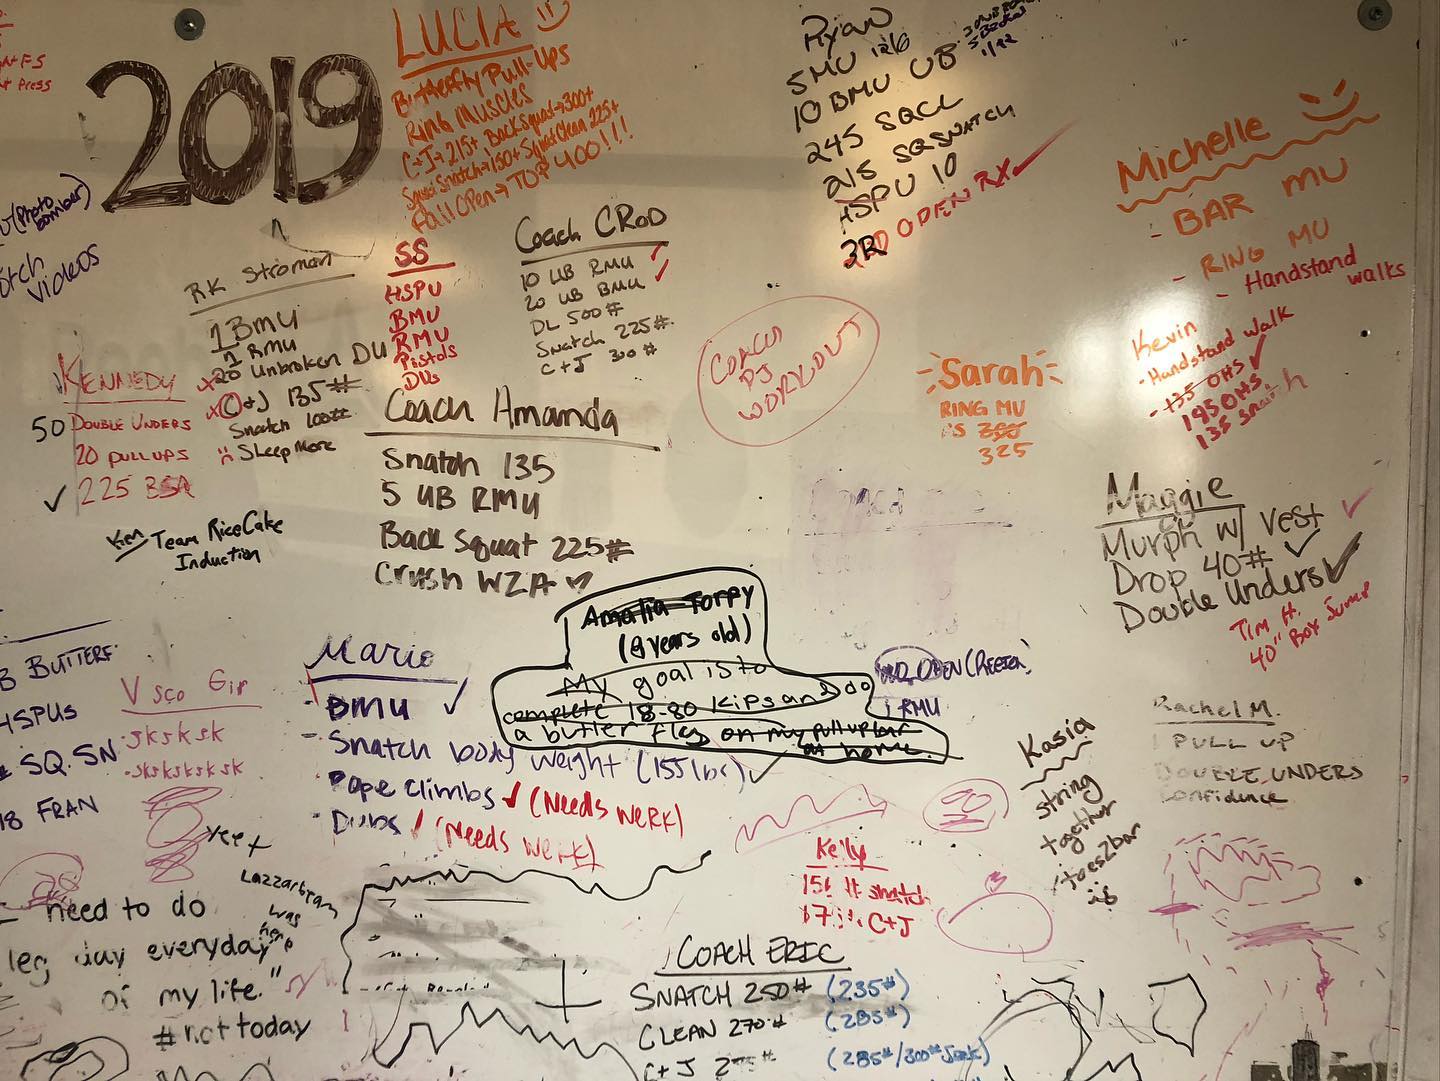 2019
LUCIA
Butterfly Pull-Ups
RING MUSCLES
C+J→215+ BackSquat→300+
Squat Snatch→150+ SquatClean 225+
Fall Open→TOP 400!!!
Ryan
5 MU 12/6
10 BMU UB
1/22
245 SQCL
215 SQSNATCH
HSPU 10
3RD OPEN RX
Michelle
- BAR MU
- RING MU
- Handstand walks
(Photo bomber)
videos
RK Stroman
1 BMU
1 RMU
20 Unbroken DU
C+J 135#
Snatch 100#
Sleep More
SS
HSPU
BMU
RMU
Pistols
DUs
Coach CROD
10 UB RMU
20 UB BMU
DL 500#
Snatch 225#
C+J 300#
COACH
PJ
WORKOUT
Sarah
RING MU
325
Kevin
- Handstand walk
- 135 OHS
185 OHS
135 Snatch
KENNEDY
50 DOUBLE UNDERS
20 PULL UPS
225 BSQ
Coach Amanda
Snatch 135
5 UB RMU
Back Squat 225#
Crush WZA
Ken Team RiceCake
Induction
Maggie
Murph w/ Vest
Drop 40#
Double Unders
Tim H.
40" Box Jump
Amalia Torpy
(9 years old)
My goal is to
complete 18-80 kips and do
a butter fly on my pull up bar
at home.
OPEN
1 RMU
BUTTERF
HSPUs
SQ. SN
FRAN
V sco Girl
- sksksk
- sksksksksk
yeet
Mario
- BMU
- Snatch body weight (155lbs)
- Rope climbs (Needs Werk)
- Dubs (Needs Werk)
Kasia
string
together
toes2bar
Rachel M.
1 PULL UP
DOUBLE UNDERS
Confidence
Kelly
snatch
C+J
need to do
leg day everyday
of my life."
#nottoday
Lazzarbram
was
here
COACH ERIC
SNATCH 250# (235#)
CLEAN 270# (285#)
C+J (285#/300# Jerk)